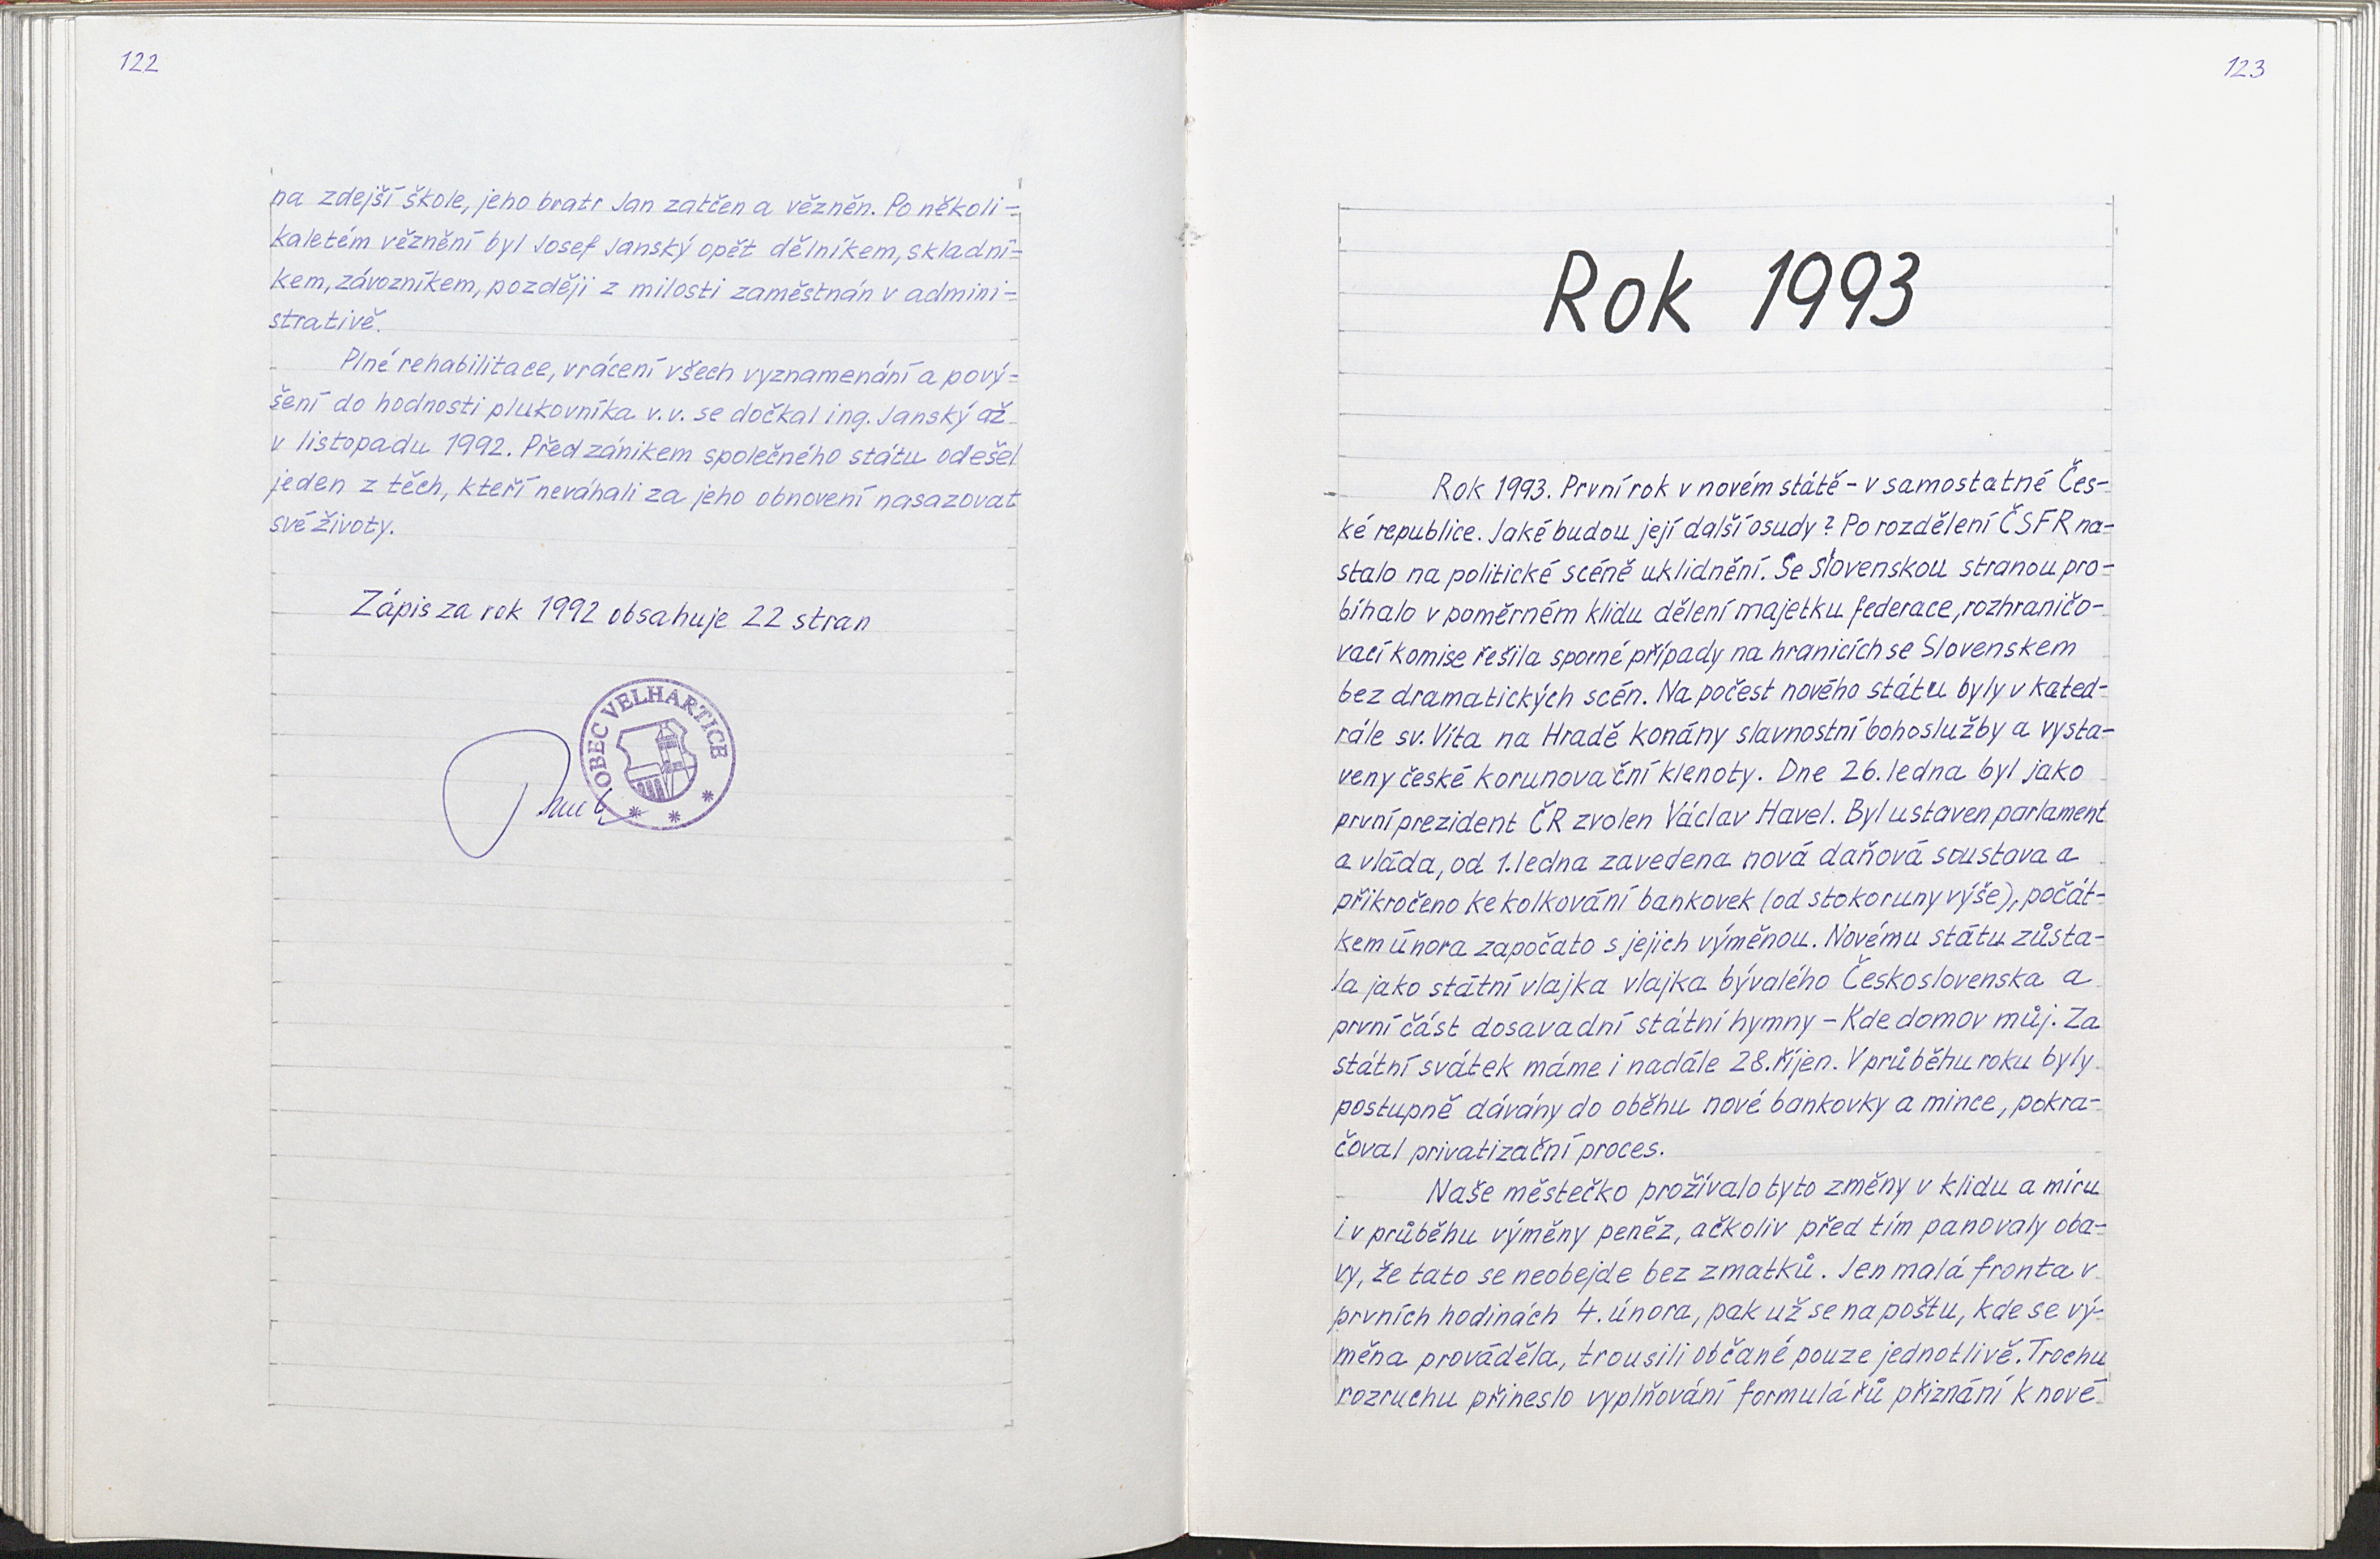 122
na zdejší škole, jeho bratr Jan zatčen a vězněn. Po několi=
kaletém věznění byl Josef Janský opět dělníkem, skladní=
kem, závozníkem, později z milosti zaměstnán v admini=
strativě.
Plné rehabilitace, vrácení všech vyznamenání a pový=
šení do hodnosti plukovníka v.v. se dočkal ing. Janský až
v listopadu 1992. Před zánikem společného státu odešel
jeden z těch, kteří neváhali za jeho obnovení nasazovat
své životy.
Zápis za rok 1992 obsahuje 22 stran
OBEC VELHARTICE
123
Rok 1993
Rok 1993. První rok v novém státě - v samostatné Čes-
ké republice. Jaké budou její další osudy? Po rozdělení ČSFR na-
stalo na politické scéně uklidnění. Se Slovenskou stranou pro-
bíhalo v poměrném klidu dělení majetku federace, rozhraničo-
vací komise řešila sporné případy na hranicích se Slovenskem
bez dramatických scén. Na počest nového státu byly v kated-
rále sv. Víta na Hradě konány slavnostní bohoslužby a vysta-
veny české korunovační klenoty. Dne 26. ledna byl jako
první prezident ČR zvolen Václav Havel. Byl ustaven parlament
a vláda, od 1. ledna zavedena nová daňová soustava a
přikročeno ke kolkování bankovek (od stokoruny výše), počát-
kem února započato s jejich výměnou. Novému státu zůsta-
la jako státní vlajka vlajka bývalého Československa a
první část dosavadní státní hymny - Kde domov můj. Za
státní svátek máme i nadále 28. říjen. V průběhu roku byly
postupně dávány do oběhu nové bankovky a mince, pokra-
čoval privatizační proces.
Naše městečko prožívalo tyto změny v klidu a míru
i v průběhu výměny peněz, ačkoliv před tím panovaly oba-
vy, že tato se neobejde bez zmatků. Jen malá fronta v
prvních hodinách 4. února, pak už se na poštu, kde se vý-
měna prováděla, trousili občané pouze jednotlivě. Trochu
rozruchu přineslo vyplňování formulářů přiznání k nové